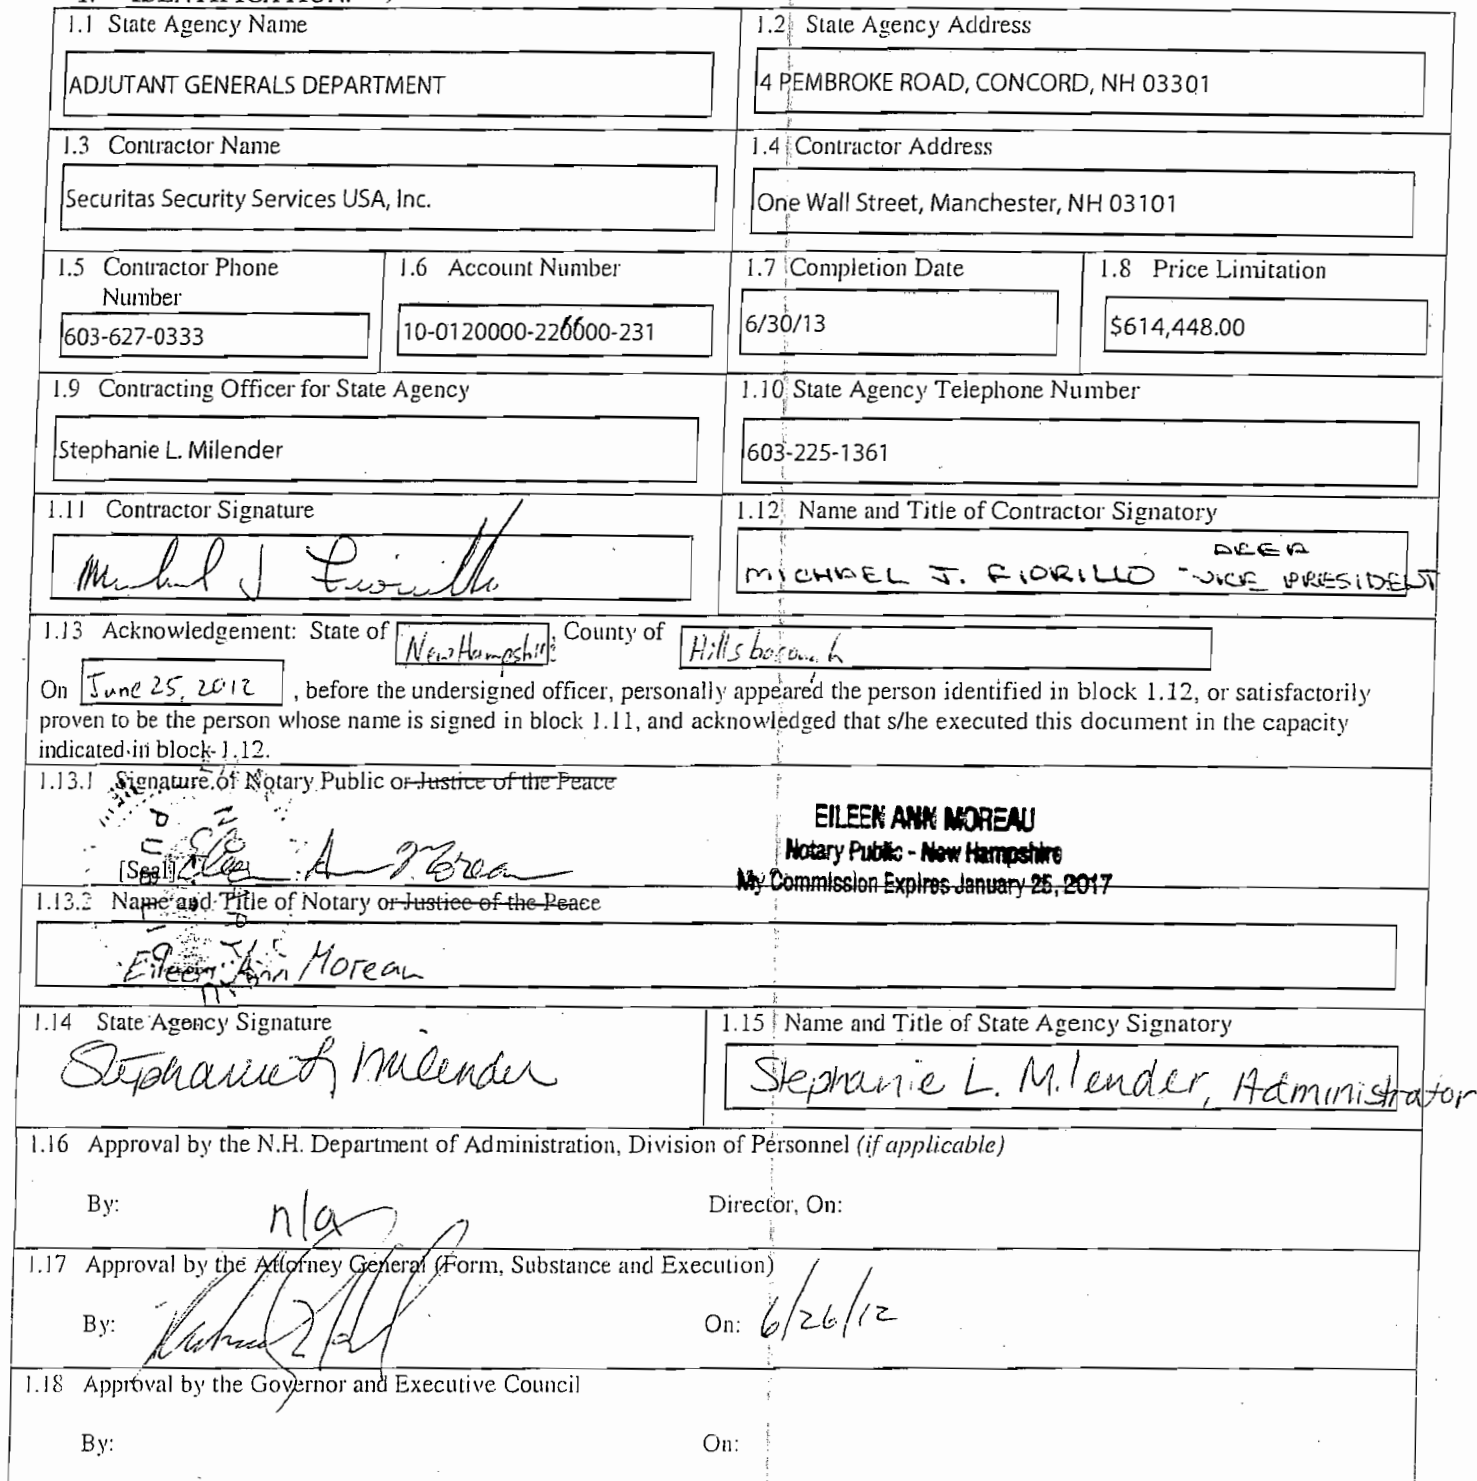 1.1 State Agency Name
ADJUTANT GENERALS DEPARTMENT
1.2 State Agency Address
4 PEMBROKE ROAD, CONCORD, NH 03301
1.3 Contractor Name
Securitas Security Services USA, Inc.
1.4 Contractor Address
One Wall Street, Manchester, NH 03101
1.5 Contractor Phone
Number
603-627-0333
1.6 Account Number
10-0120000-226600-231
1.7 Completion Date
6/30/13
1.8 Price Limitation
$614,448.00
1.9 Contracting Officer for State Agency
Stephanie L. Milender
1.10 State Agency Telephone Number
603-225-1361
1.11 Contractor Signature
Michael J Fiorillo
1.12 Name and Title of Contractor Signatory
AREA
MICHAEL J. FIORILLO - VICE PRESIDENT
1.13 Acknowledgement: State of New Hampshire, County of Hillsborough
On June 25, 2012, before the undersigned officer, personally appeared the person identified in block 1.12, or satisfactorily
proven to be the person whose name is signed in block 1.11, and acknowledged that s/he executed this document in the capacity
indicated in block 1.12.
1.13.1 Signature of Notary Public or Justice of the Peace
[Seal] Eileen Ann Moreau
EILEEN ANN MOREAU
Notary Public - New Hampshire
My Commission Expires January 25, 2017
1.13.2 Name and Title of Notary or Justice of the Peace
Eileen Ann Moreau
1.14 State Agency Signature
Stephanie L Milender
1.15 Name and Title of State Agency Signatory
Stephanie L. Milender, Administrator
1.16 Approval by the N.H. Department of Administration, Division of Personnel (if applicable)
By: n/a Director, On:
1.17 Approval by the Attorney General (Form, Substance and Execution)
By: On: 6/26/12
1.18 Approval by the Governor and Executive Council
By: On: